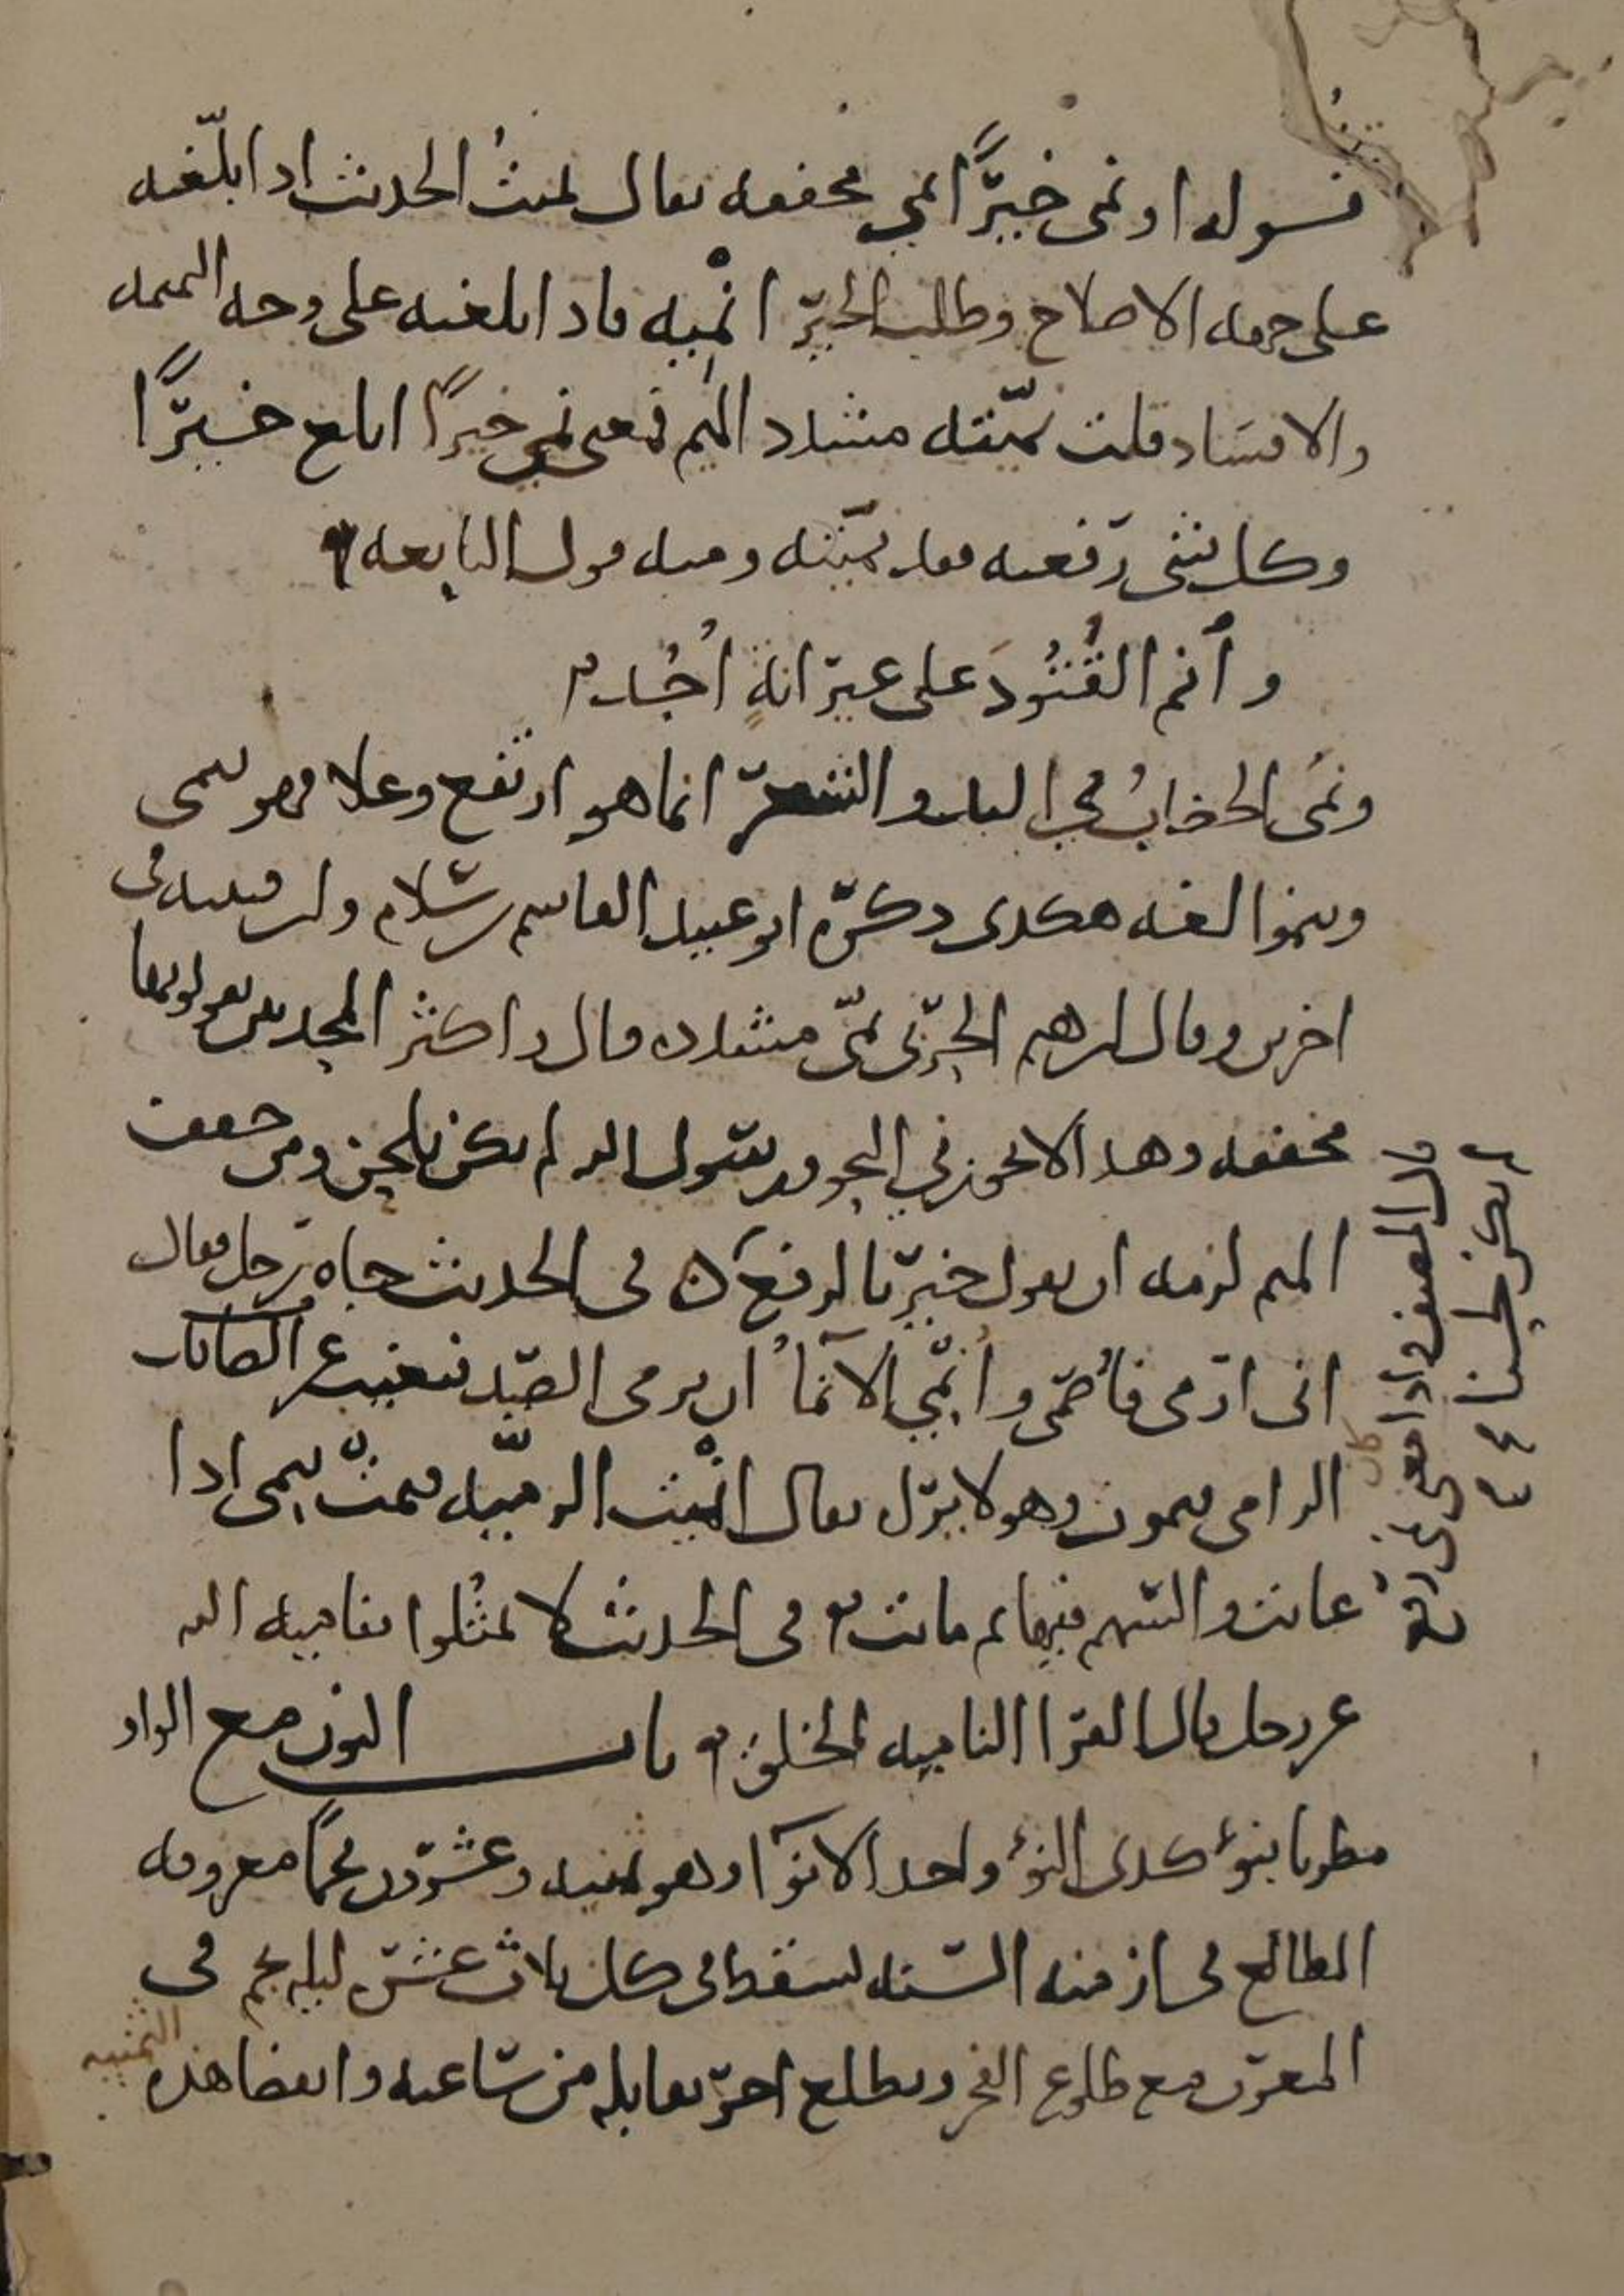 قوله او نمى خيرًا نمى مخففه يقال نميتُ الحديث اذا بلّغته
على جهه الاصلاح وطلب الخير انْميه فاذا بلغته على وجه النميمه
والافساد قلت نمّيته مشدد الميم فمعنى نمى خيرًا ابلغ خيرًا
وكل شي رفعته فقد نميته ومنه قول النابغه
وٱنم القُتُودَ على عيرانةٍ أُجُد
ونمَى الخضابُ في اليد والشعر انما هو ارتفع وعلا فهو ينمى
وينموا لغه هكذى ذكره ابو عبيد القاسم بن سلام وابن قتيبه في
اخرين وقال ابرهيم الحربي نمّى مشدده قال واكثر المحدثين يقولونها
مخففه وهذا لا يجوز في النحو ورسول الله لم يكن يلحن ومن خفف
الميم لزمه ان يقول خير بالرفع ۞ في الحديث جاه رجل فقال
انى ارمى فأُصمى وأُنْمي الانمآُ ان يرمى الصيد فيغيب عن
الرامى فيموت وهو لا يراه يقال انْميتُ الرميّه فنمتْ تنمى اذا
غابت والسهم فيها ثم ماتت في الحديث لا تمثُلوا بناميه الله
عز وجل قال الفرا الناميه الخلق باب النون مع الواو
مطرنا بنوء كذى النوء واحد الانوآ وهو ثمنيه وعشرون نجمًا معروفه
المطالع في ازمنه السنه يسقط في كل ثلاث عشره ليله نجم في
المغرب مع طلوع الفجر ويطلع اخر يقابله من ساعته وانقضا هذه
الثمنيه
قال المصنف
كان